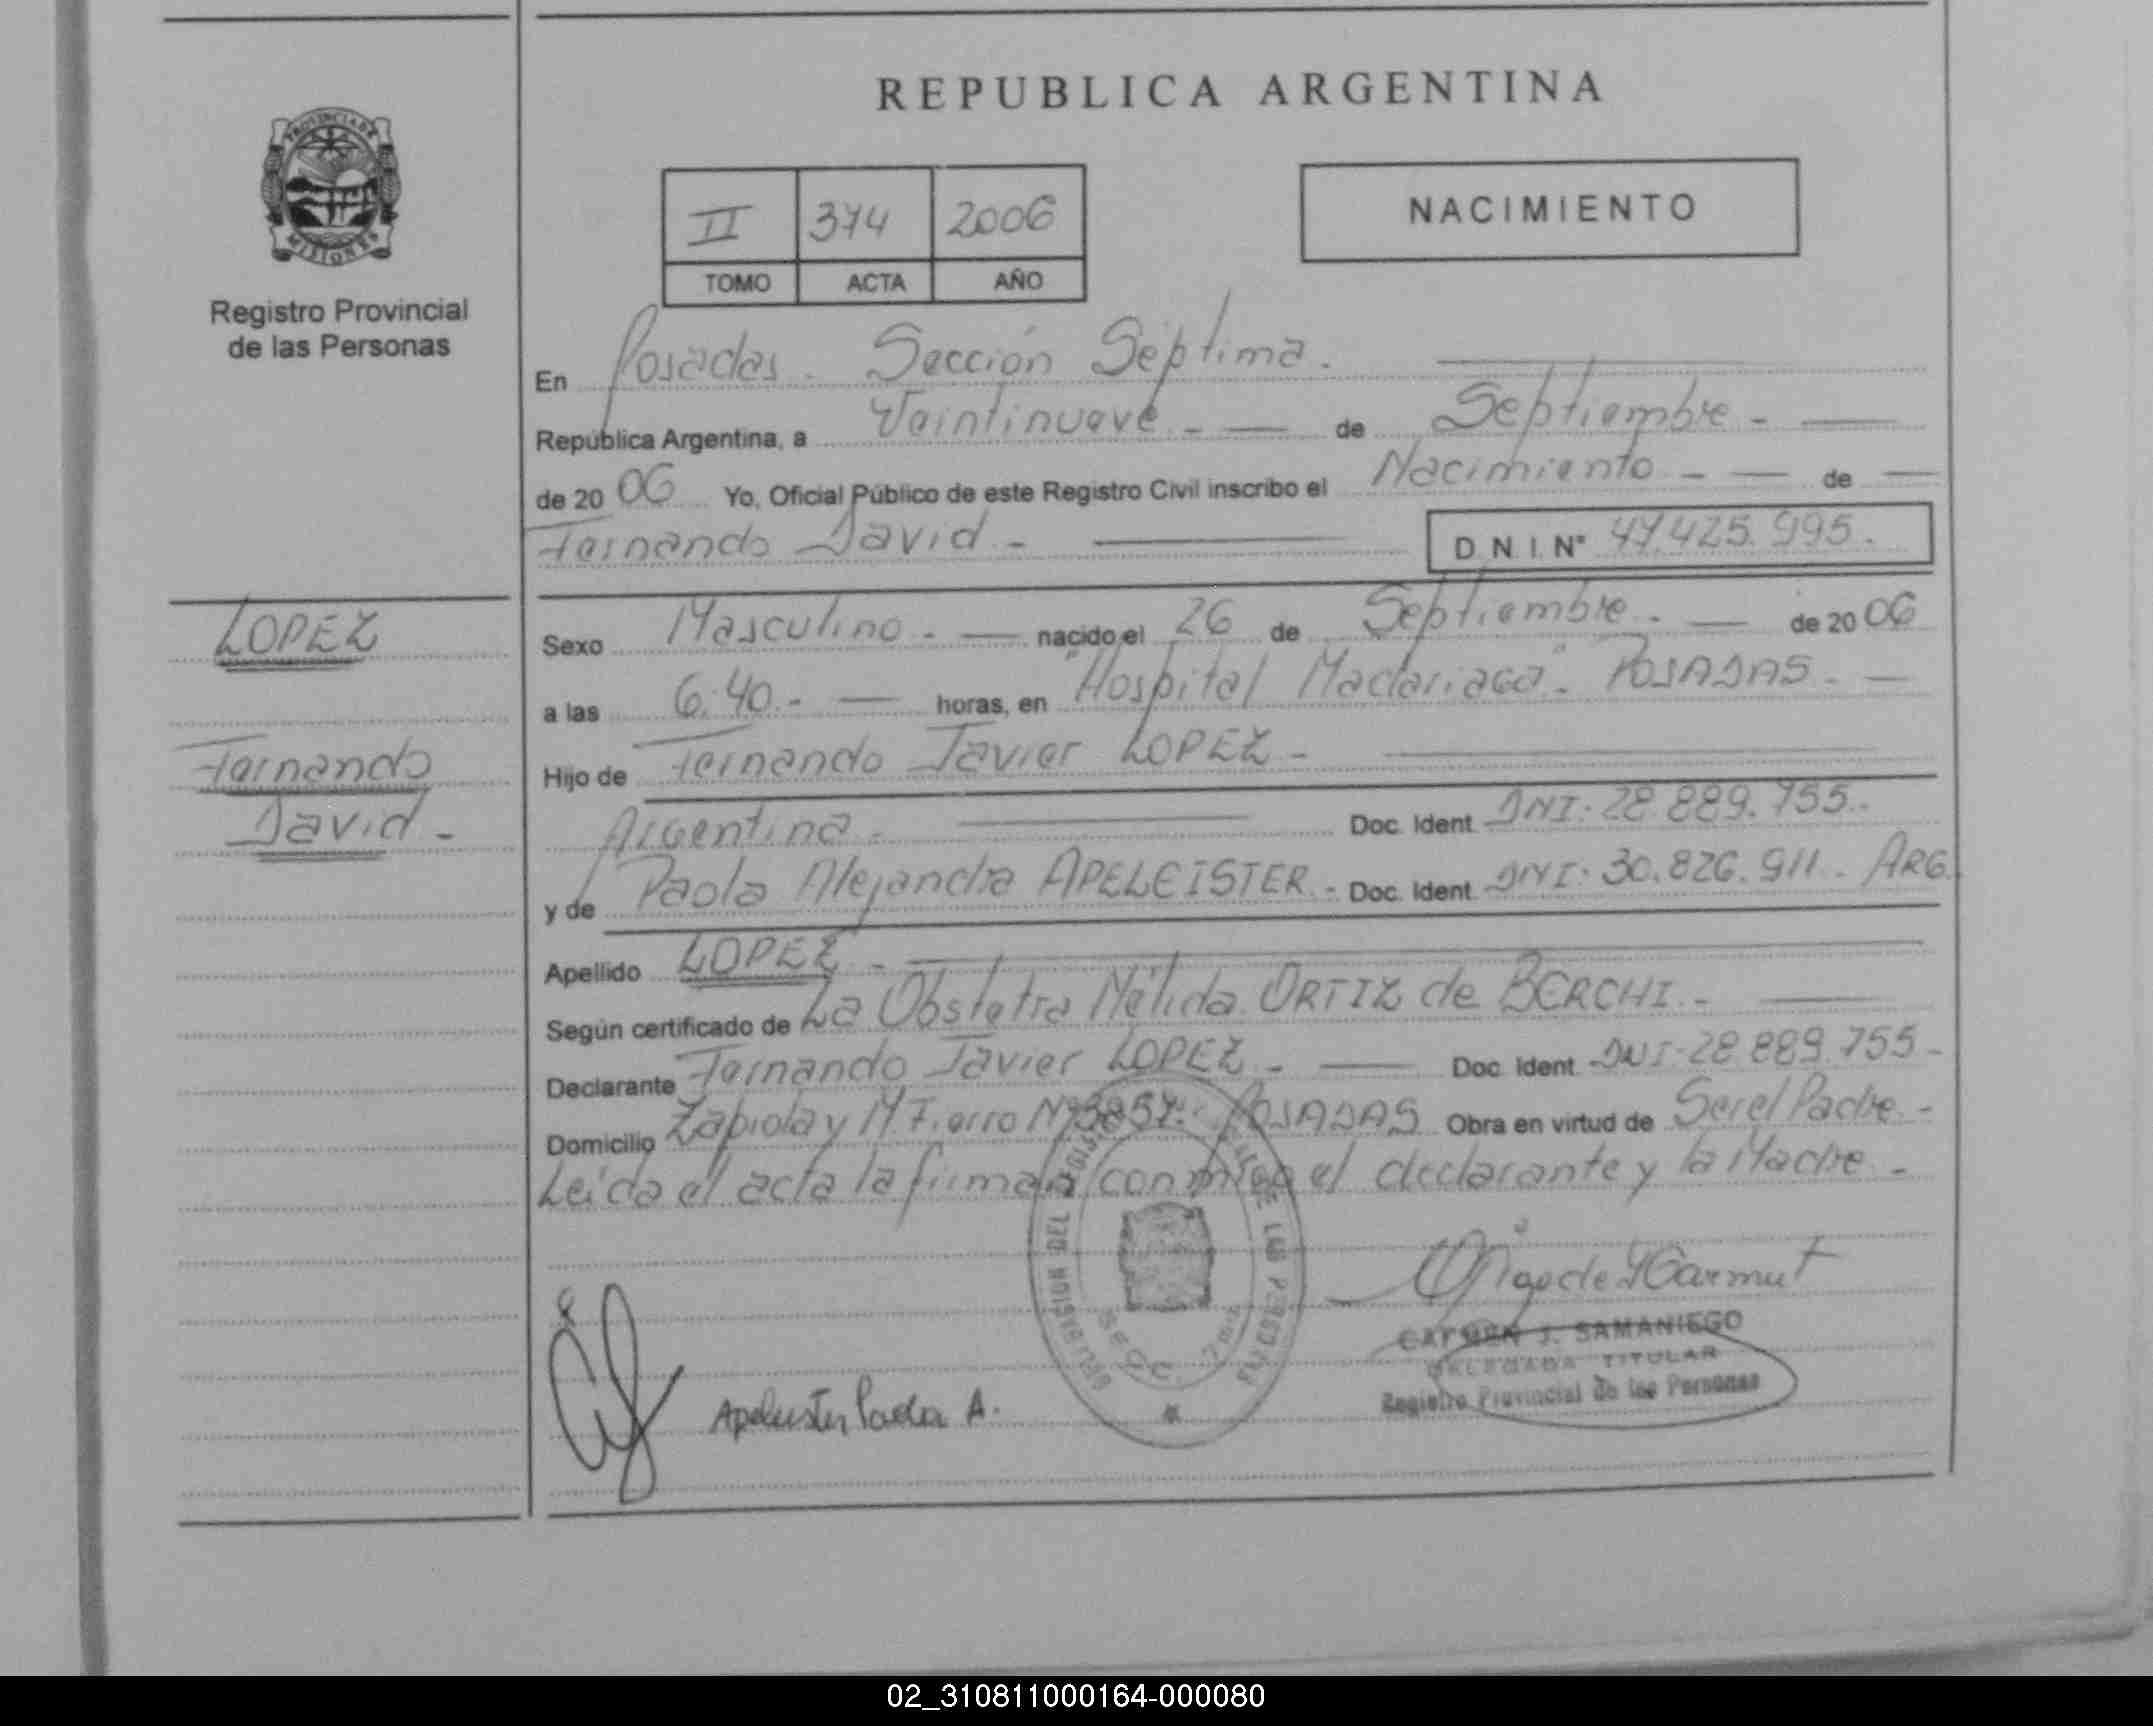 REPUBLICA ARGENTINA
PROVINCIA DE
MISIONES
Registro Provincial
de las Personas
II 374 2006
TOMO ACTA AÑO
NACIMIENTO
En Posadas. Sección Séptima.
República Argentina, a Veintinueve. - de Septiembre -
de 20 06 Yo, Oficial Público de este Registro Civil inscribo el Nacimiento - de
Fernando David - D N I N° 47.425.995.
LOPEZ
Fernando
David -
Sexo Masculino. - nacido el 26 de Septiembre. - de 20 06
a las 6:40. - horas, en "Hospital Madariaga". POSADAS. -
Hijo de Fernando Javier LOPEZ -
Argentina. Doc. Ident. DNI: 28.889.755.
y de Paola Alejandra APELEISTER. - Doc. Ident. DNI: 30.826.911. ARG.
Apellido LOPEZ -
Según certificado de La Obstetra Nélida ORTIZ de BERCHI. -
Declarante Fernando Javier LOPEZ. - Doc. Ident. DNI: 28.889.755 -
Domicilio Zapiola y M. Fierro N° POSADAS Obra en virtud de Ser el Padre. -
Leída el acta la firman conmigo el declarante y la Madre. -
SECC. 7ma
Apeleister Paola A.
CARMEN J. SAMANIEGO
DELEGADA TITULAR
Registro Provincial de las Personas
02_310811000164-000080